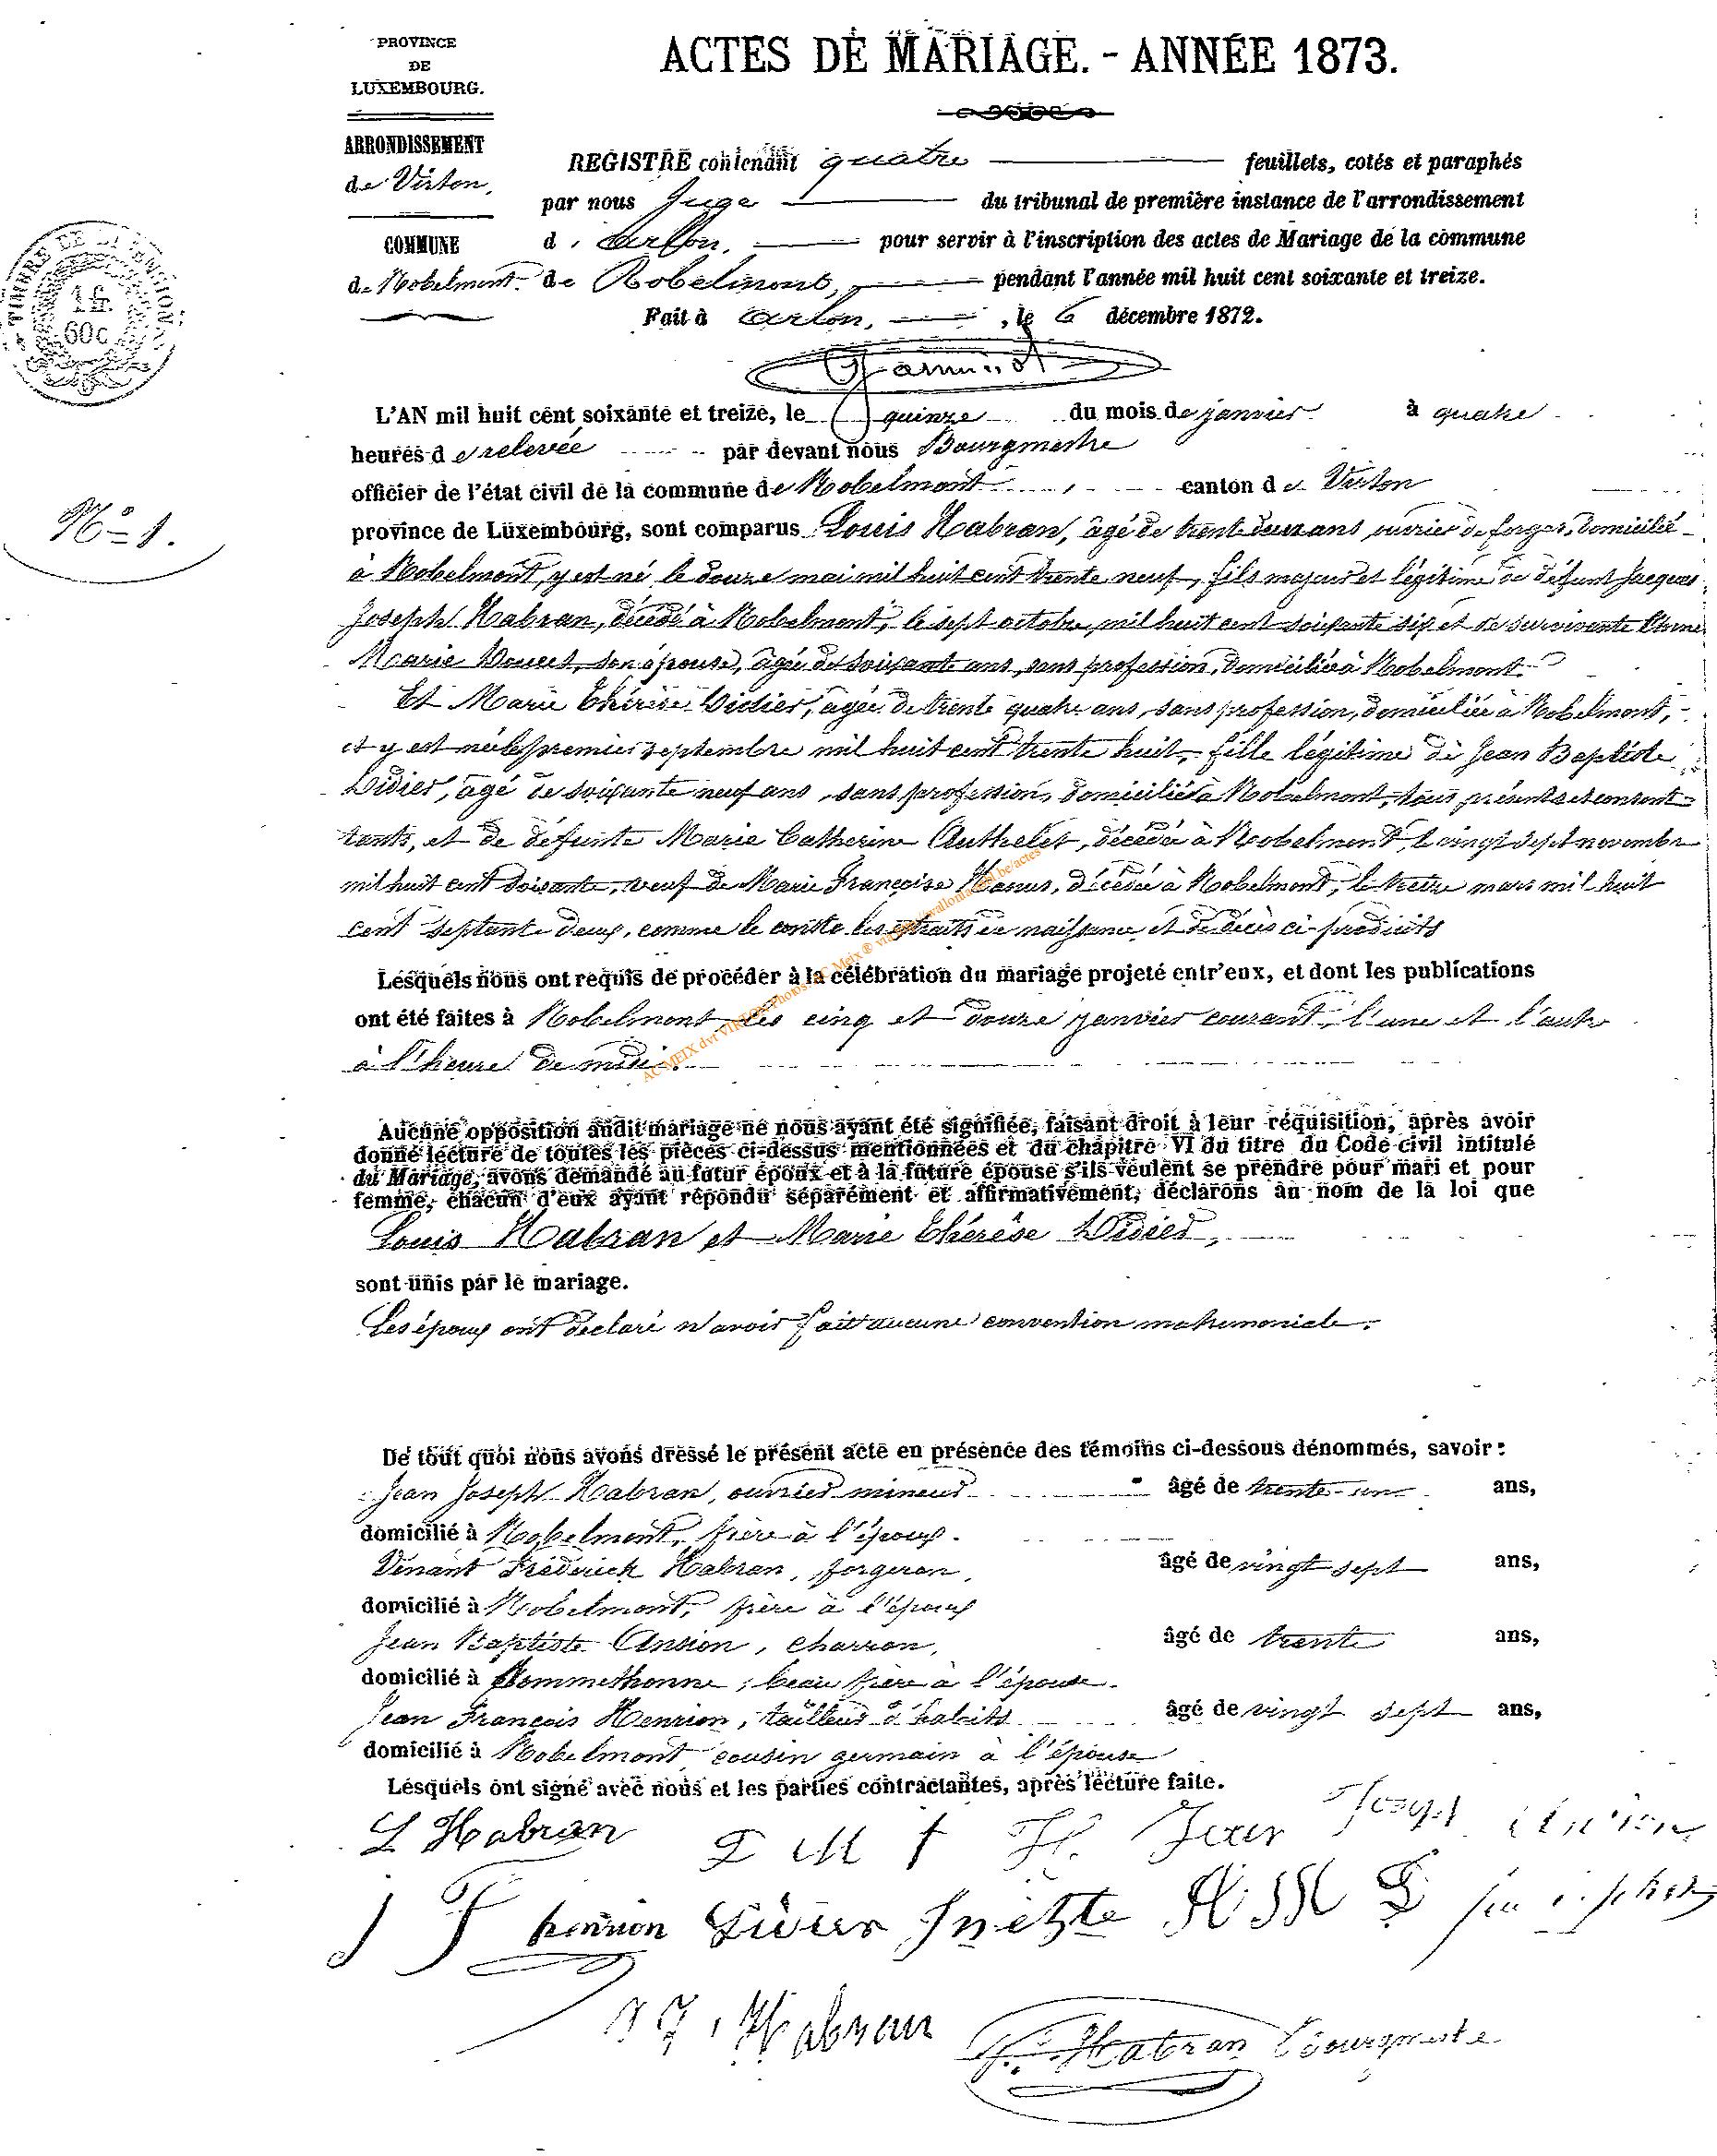 PROVINCE
DE
LUXEMBOURG.
ACTES DE MARIAGE. - ANNÉE 1873.
ARRONDISSEMENT
de Virton.
COMMUNE
de Robelmont.
TIMBRE DE DIMENSION
1 f.
60 c
REGISTRE contenant quatre feuillets, cotés et paraphés
par nous Juge du tribunal de première instance de l'arrondissement
d'Arlon, pour servir à l'inscription des actes de Mariage de la commune
de Robelmont, pendant l'année mil huit cent soixante et treize.
Fait à Arlon, , le 6 décembre 1872.
N° 1.
L'AN mil huit cent soixante et treize, le quinze du mois de janvier à quatre
heures de relevée par devant nous Bourgmestre
officier de l'état civil de la commune de Robelmont, canton de Virton
province de Luxembourg, sont comparus Louis Habran, âgé de trente deux ans, ouvrier de forges, domicilié
à Robelmont, y est né le douze mai mil huit cent trente neuf, fils majeur et légitime de défunt Jacques
Joseph Habran, décédé à Robelmont, le sept octobre mil huit cent soixante six et de survivante
Marie son épouse, âgée de soixante ans, sans profession, domiciliée à Robelmont.
Et Marie Thérèse Didier, âgée de trente quatre ans, sans profession, domiciliée à Robelmont,
et y est née le premier septembre mil huit cent trente huit, fille légitime de Jean Baptiste
Didier, âgé de soixante neuf ans, sans profession, domicilié à Robelmont, tous présents et consen-
tants, et de défunte Marie Catherine Authelet, décédée à Robelmont, le vingt sept novembre
mil huit cent soixante, veuf de Marie Françoise Hanus, décédée à Robelmont, le treize mars mil huit
cent septante deux, comme le conste les extraits de naissance et de décès ci-produits
Lesquels nous ont requis de procéder à la célébration du mariage projeté entr'eux, et dont les publications
ont été faites à Robelmont les cinq et douze janvier courant, l'une et l'autre
à l'heure de midi.
Aucune opposition audit mariage ne nous ayant été signifiée, faisant droit à leur réquisition, après avoir
donné lecture de toutes les pièces ci-dessus mentionnées et du chapitre VI du titre du Code civil intitulé
du Mariage, avons demandé au futur époux et à la future épouse s'ils veulent se prendre pour mari et pour
femme, chacun d'eux ayant répondu séparément et affirmativement, déclarons au nom de la loi que
Louis Habran et Marie Thérèse Didier,
sont unis par le mariage.
Les époux ont déclaré n'avoir fait aucune convention matrimoniale.
De tout quoi nous avons dressé le présent acte en présence des témoins ci-dessous dénommés, savoir :
Jean Joseph Habran, ouvrier mineur âgé de trente un ans,
domicilié à Robelmont, frère à l'époux.
Venant Fréderick Habran, forgeron, âgé de vingt sept ans,
domicilié à Robelmont, frère à l'époux
Jean Baptiste Ansion, charron, âgé de trente ans,
domicilié à Sommethonne, beau frère à l'épouse.
Jean François Henrion, tailleur d'habits âgé de vingt sept ans,
domicilié à Robelmont cousin germain à l'épouse
Lesquels ont signé avec nous et les parties contractantes, après lecture faite.
L Habran
J F henrion
Habran
Habran Bourgmestre